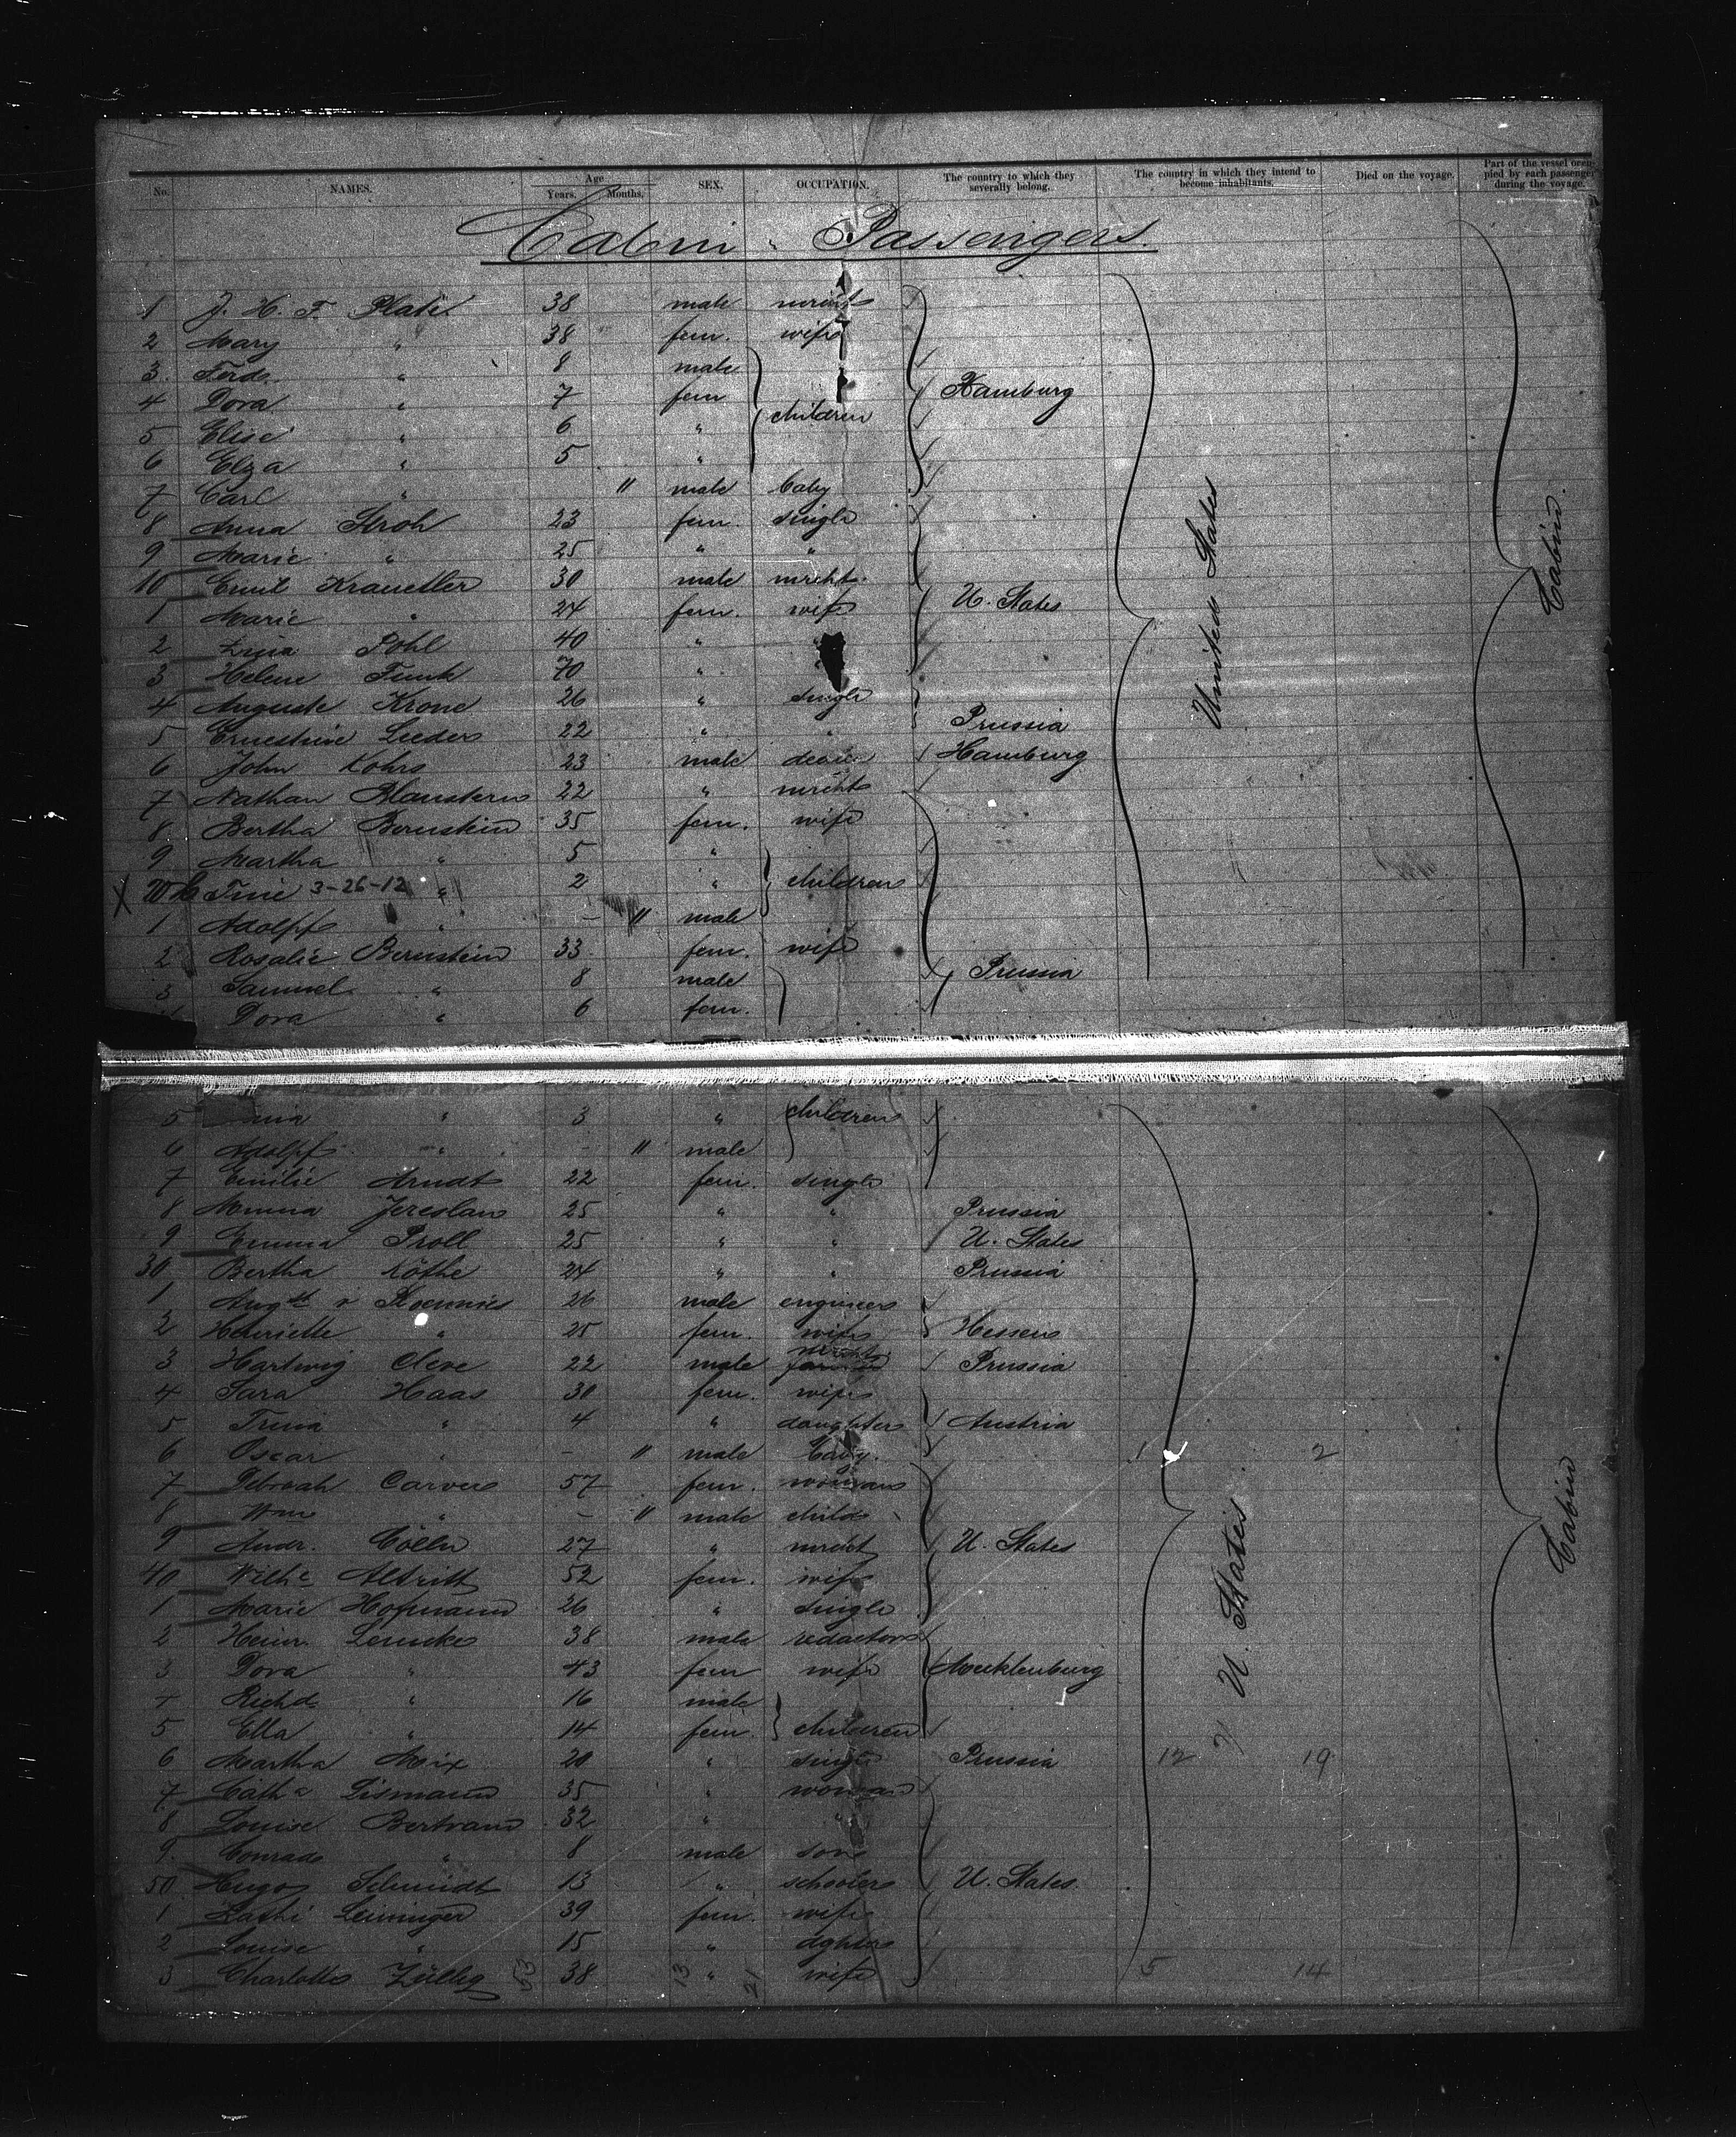 No. NAMES. Age Years. Months. SEX. OCCUPATION. The country to which they severally belong. The country in which they intend to become inhabitants. Died on the voyage. Part of the vessel occupied by each passenger during the voyage.
Cabin Passengers.
1 J. H. F. Plate 38 male mrcht
2 Mary " 38 fem. wife
3. Ferd. " 8 male
4 Dora " 7 fem Hamburg
5 Elise " 6 " children
6 Elza " 5 "
7 Carl " 11 male baby
8 Anna Stroh 23 fem. single
9 Marie " 25 " "
10 Emil Krauetler 30 male mrcht.
1 Marie " 24 fem. wife U. States
2 Lina Pohl 40 " "
3 Helene Funk 70 " "
4 Auguste Krone 26 " single
5 Ernestine Lieders 22 " " Prussia
6 John Kohrs 23 male Hamburg
7 Nathan Blaustern 22 " mrcht
8 Bertha Bernstein 35 fem. wife
9 Martha " 5 "
X 20 Tine 3-26-12 " 2 " children
1 Adolf " - 11 male
2 Rosalie Bernstein 33 fem. wife
3 Samuel " 8 male Prussia
Dora " 6 fem.
United States
Cabin.
5 " 3 " children
6 Adolf " - 11 male
7 Emilie Arndt 22 fem. single
8 Minna Jereslaw 25 " " Prussia
9 Emma Proll 25 " " U. States
30 Bertha Köthe 24 " " Prussia
1 Augst v 26 male engineer
2 Henriette " 25 fem. wife Hessen
3 Hartwig Cleve 22 male mrcht Prussia
4 Sara Haas 30 fem. wife
5 Trena " 4 " daughter Austria
6 Oscar " - 11 male baby. 1 2
7 Deborah Carver 57 fem. woman
8 Wm " - 11 male child
9 Andr. Cölln 27 " mrcht U. States
40 Wilhe Aldritt 52 fem. wife
1 Marie Hofmann 26 " single
2 Heinr. Lemcke 38 male redactor
3 Dora " 43 fem wife Mecklenburg
4 Richd " 16 male
5 Ella " 14 fem. children
6 Martha Mix 20 " single Prussia 12 19
7 Catha Lismann 35 " woman
8 Louise Bertrand 32 " "
9. Conrad " 8 male son
50 Hugo Schmidt 13 " schooler U. States
1 Kathi Leininger 39 fem. wife
2 Louise " 15 " dghter
3 Charlotte Züllig 53 38 13 " 21 wife 5 14
U. States
Cabin